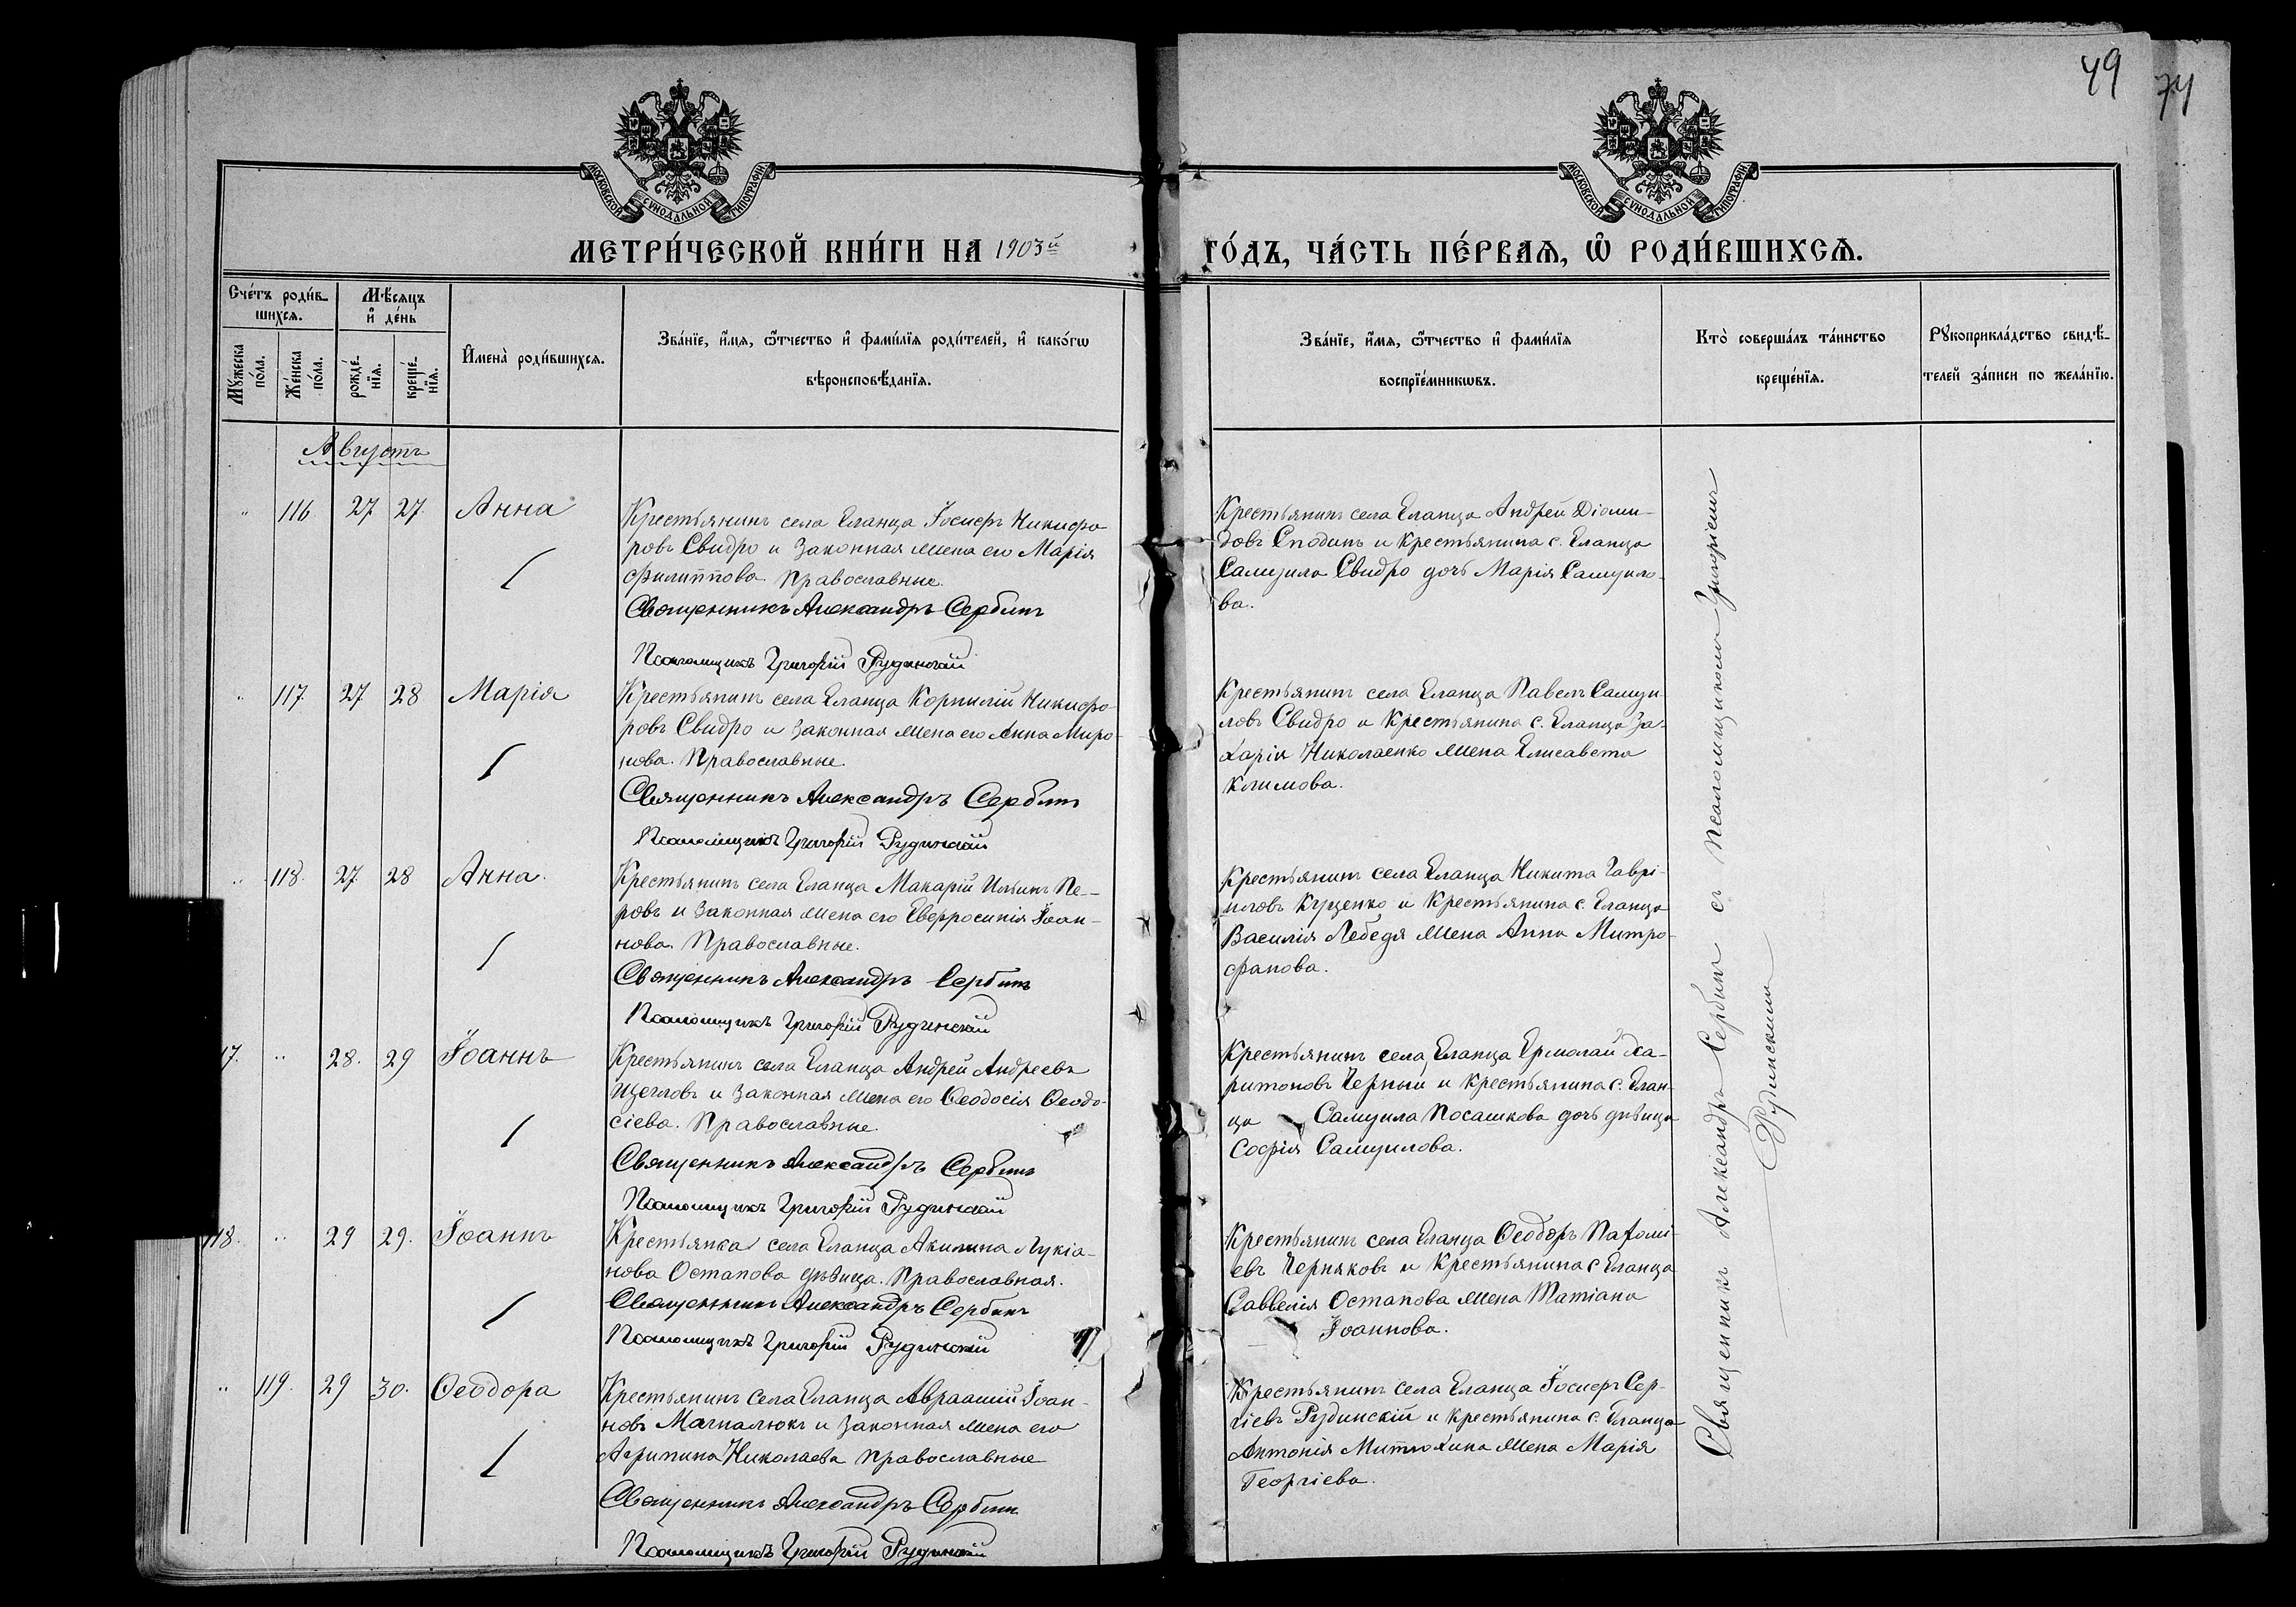 49
74
МОСКОВСКОЙ СѴНОДАЛЬНОЙ ТИПОГРАФІИ
МОСКОВСКОЙ СѴНОДАЛЬНОЙ ТИПОГРАФІИ
МЕТРИ́ЧЕСКОЙ КНИ́ГИ НА 1903й
ГО́ДЪ, ЧА́СТЬ ПЕ́РВАѦ, Ѡ҆ РОДИ́ВШИХСѦ.
Сче́тъ роди́в-
шихсѧ.
Мѣ́сѧцъ
и҆ де́нь
Мꙋ́жеска
по́ла.
Же́нска
по́ла.
рожде́-
нїѧ.
креще́-
нїѧ.
И҆мена̀ роди́вшихсѧ.
Зва́нїе, и҆́мѧ, ѻ҆́тчество и҆ фами́лїѧ роди́телей, и҆ како́гѡ
вѣроисповѣ́данїѧ.
Зва́нїе, и҆́мѧ, ѻ҆́тчество и҆ фами́лїѧ
воспрїе́мникѡвъ.
Кто̀ соверша́лъ та́инство
креще́нїѧ.
Рꙋкоприкла́дство свидѣ́-
телей за́писи по жела́нїю.
Августъ
" 116. 27 27. Анна
Крестьянинъ села Еланца Іосифъ Никифо-
ровъ Свидро и законная жена его Марія
Филиппова. Православные.
Священникъ Александръ Сербинъ
Псаломщикъ Григорій Рудинскій
Крестьянинъ села Еланца Андрей Діоми-
довъ Сподинъ и крестьянина с. Еланца
Самуила Свидро дочь Марія Самуило-
ва.
" 117. 27 28 Марія
Крестьянинъ села Еланца Корнилій Никифо-
ровъ Свидро и законная жена его Анна Миро-
нова. Православные.
Священникъ Александръ Сербинъ
Псаломщикъ Григорій Рудинскій
Крестьянинъ села Еланца Павелъ Самуи-
ловъ Свидро и крестьянина с. Еланца За-
харіи Николаенко жена Елисавета
Климова.
" 118. 27. 28 Анна.
Крестьянинъ села Еланца Макарій Ильинъ Пе-
ровъ и законная жена его Евфросинія Іоан-
нова. Православные.
Священникъ Александръ Сербинъ
Псаломщикъ Григорій Рудинскій
Крестьянинъ села Еланца Никита Гаврі-
иловъ Куценко и крестьянина с. Еланца
Василія Лебедя жена Анна Митро-
фанова.
17. " 28. 29 Іоаннъ
Крестьянинъ села Еланца Андрей Андреевъ
Щегловъ и законная жена его Ѳеодосія Ѳеодо-
сіева. Православные.
Священникъ Александръ Сербинъ
Псаломщикъ Григорій Рудинскій
Крестьянинъ села Еланца Ермолай Ха-
ритоновъ Черный и крестьянина с. Елан-
ца Самуила Посашкова дочь дѣвица
Софія Самуилова.
118. " 29 29. Іоаннъ
Крестьянка села Еланца Акилина Лукіа-
нова Остапова дѣвица. Православная.
Священникъ Александръ Сербинъ
Псаломщикъ Григорій Рудинскій
Крестьянинъ села Еланца Ѳеодоръ Пахомі-
евъ Черняковъ и крестьянина с Еланца
Саввелія Остапова жена Татіана
Іоаннова.
" 119. 29 30. Ѳеодора
Крестьянинъ села Еланца Авраамій Іоан-
новъ Магпалюкъ и законная жена его
Агрипина Николаева православные
Священникъ Александръ Сербинъ
Псаломщикъ Григорій Рудинскій
Крестьянинъ села Еланца Іосифъ Сер-
гіевъ Рудинскій и крестьянина с. Еланца
Антонія Митюхина жена Марія
Георгіева.
Священникъ Александръ Сербинъ съ псаломщикомъ Григоріемъ
Рудинскимъ